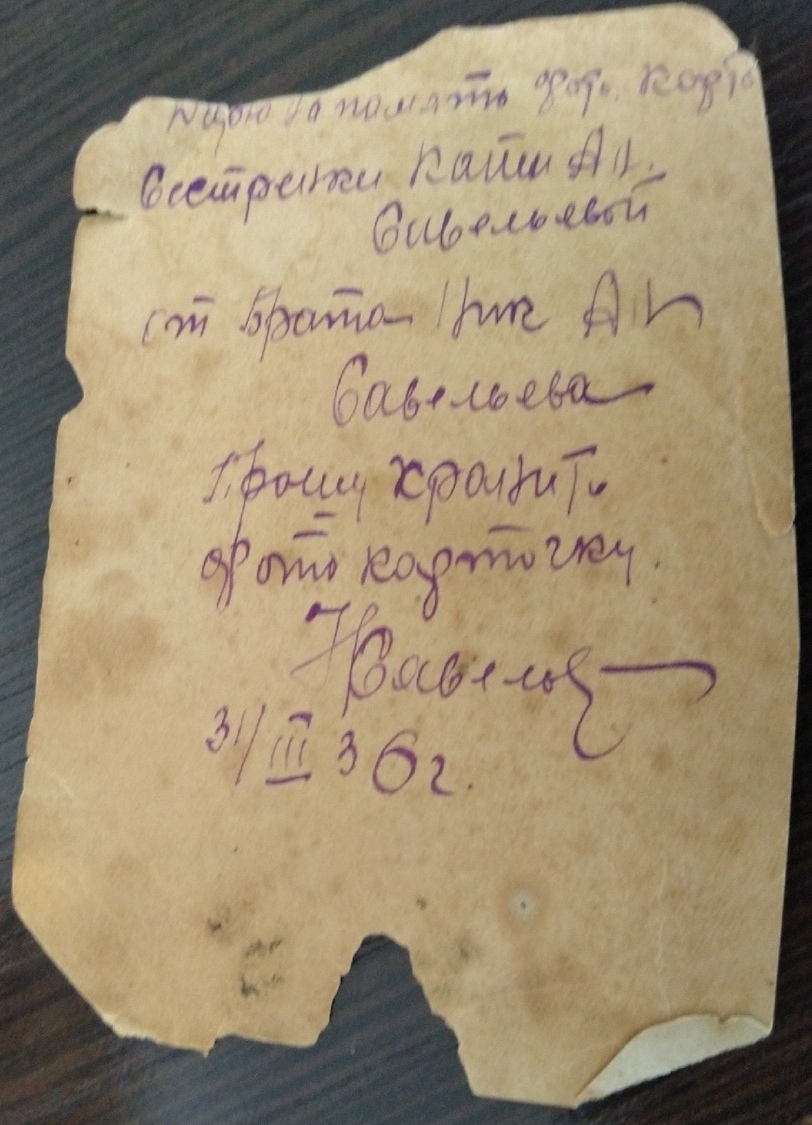 Дарю на память фото. карто
Сестренки Кати Ан.
Савельевой
от Брата Ник Ан
Савельева
Прошу хранить
фото карточку.
НСавельев
31/III 36г.